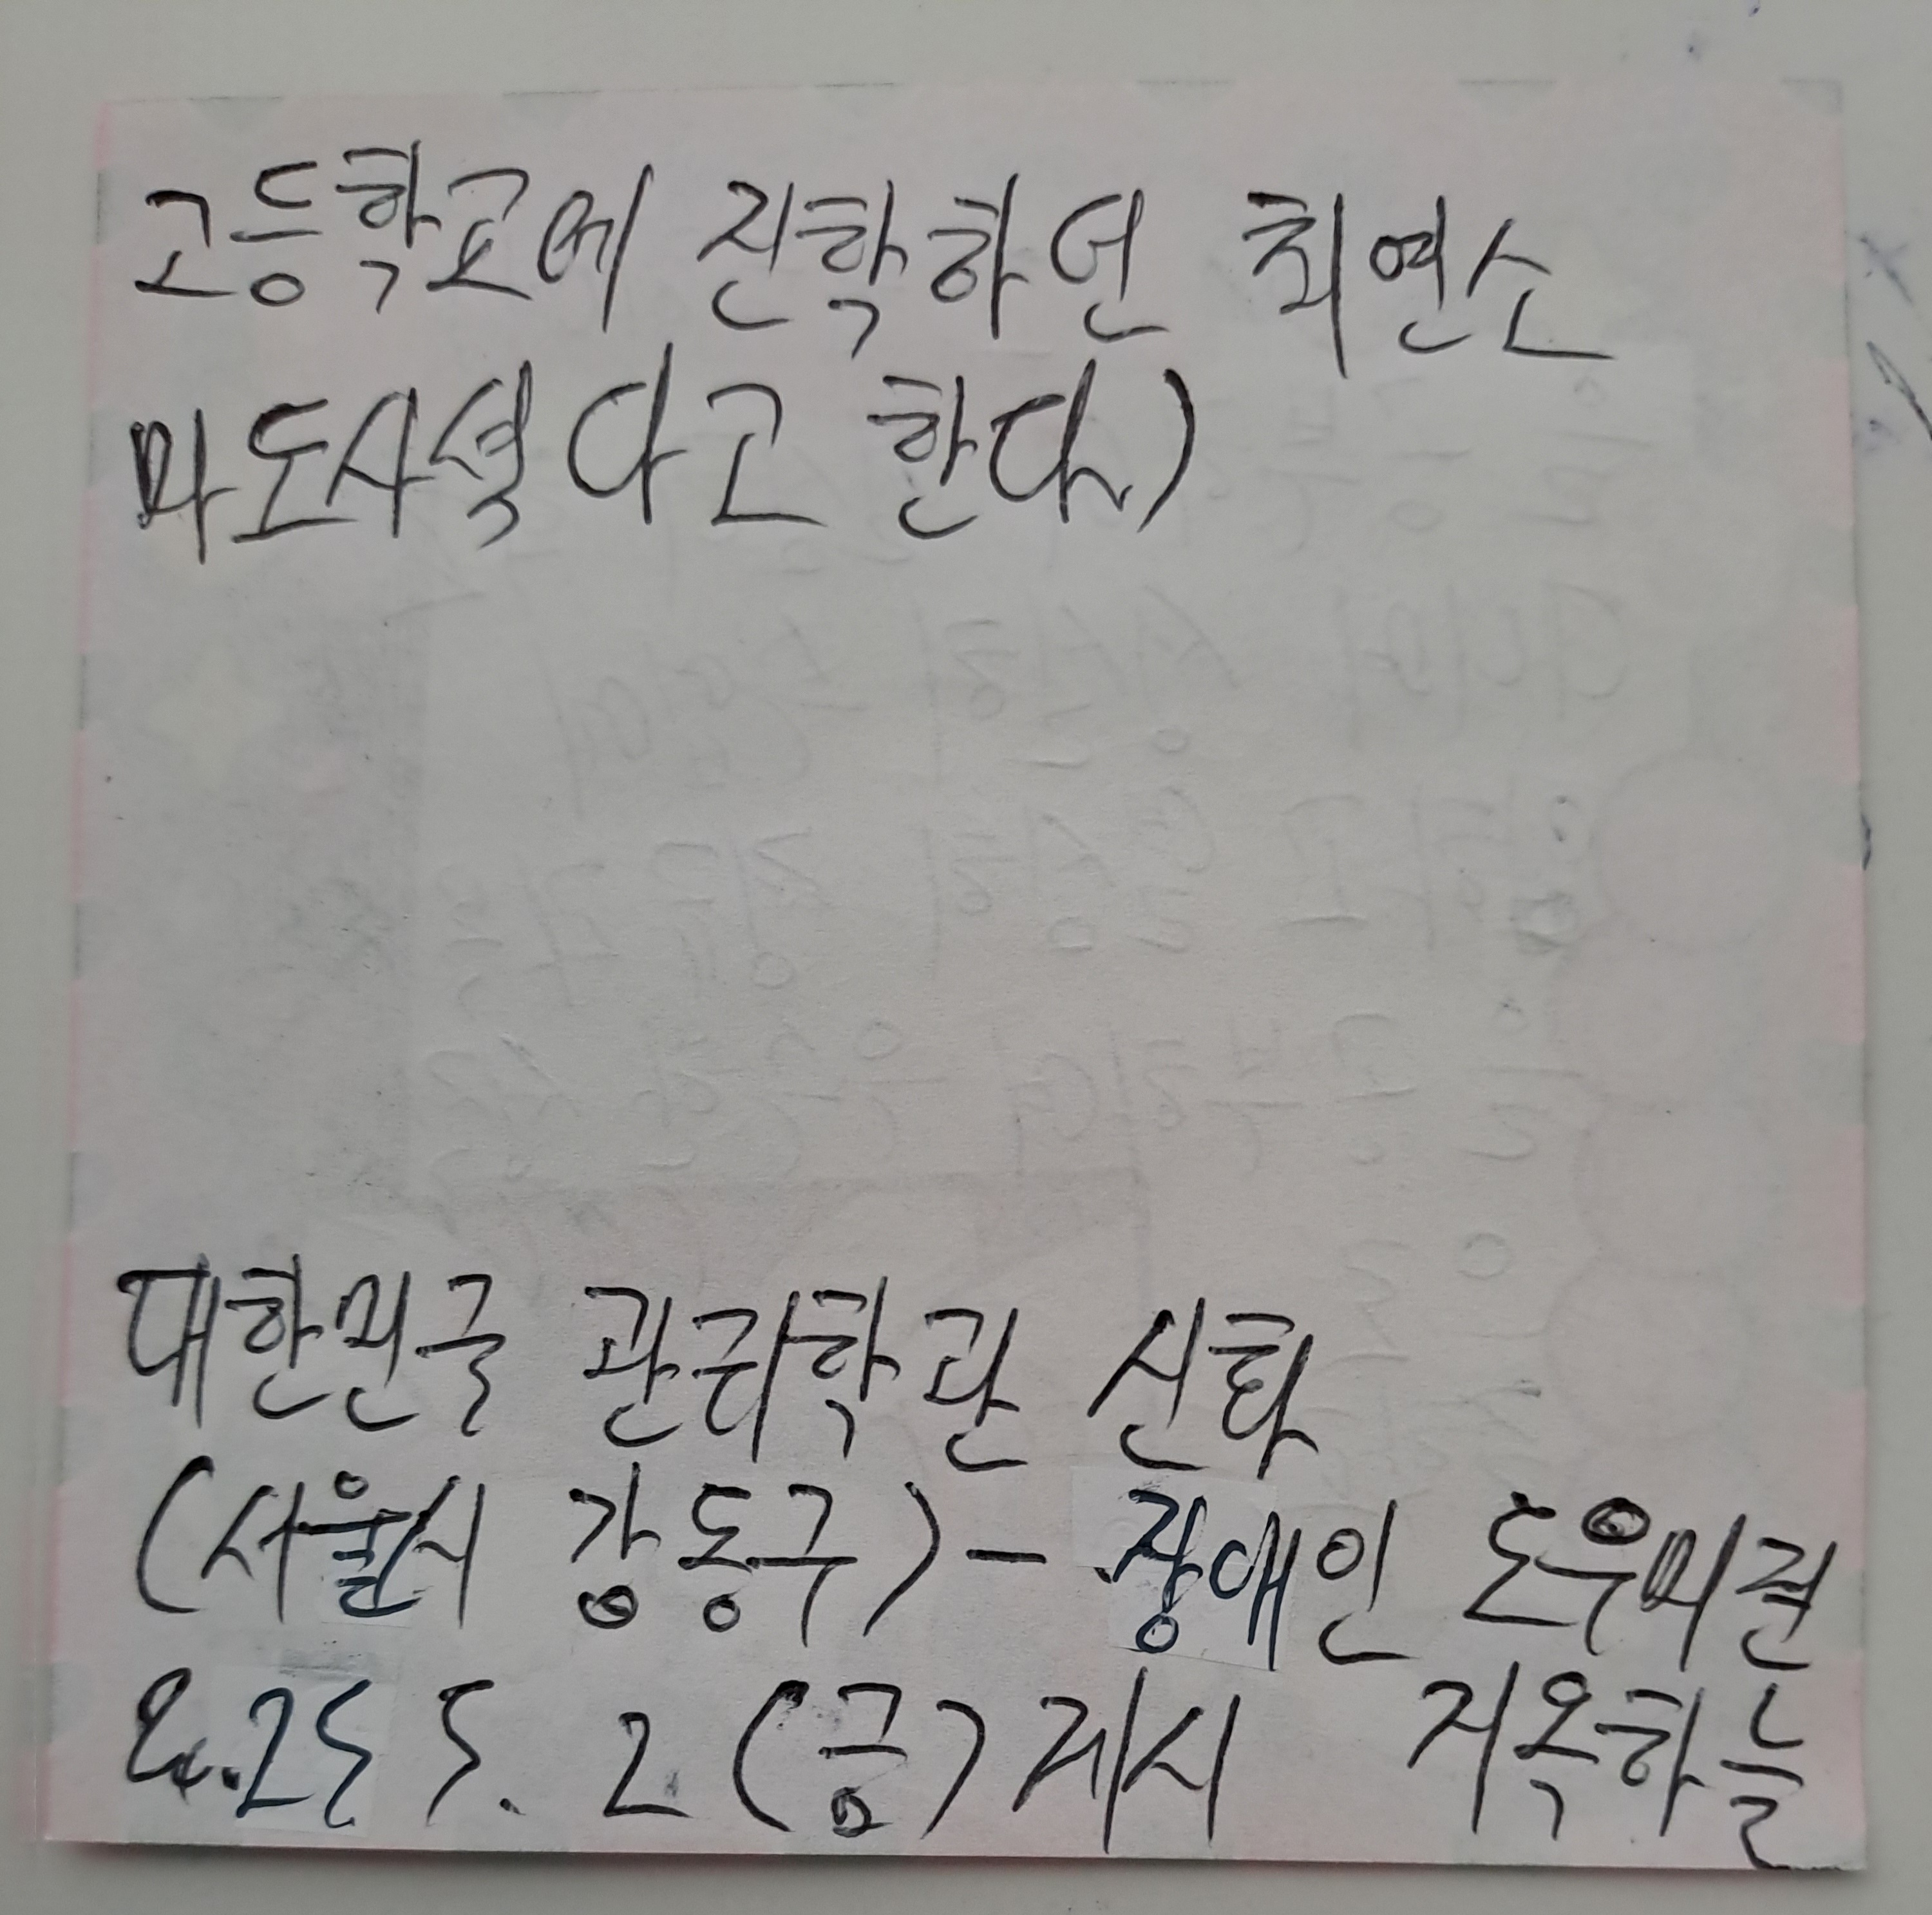 고등학교에 진학하던 최연소
마도사였다고 한다.)
대한민국 관리학관 신화
(서울시 강동구) - 장애인 도우미견
25 5. 2 (금) 게시 지옥하늘